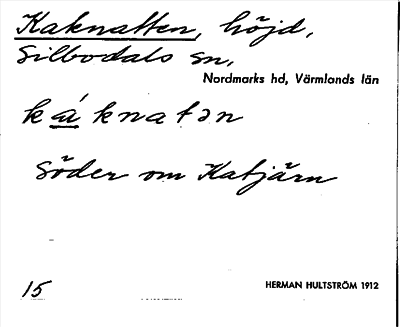 Kaknatten, höjd,
Silbodals sn,
Nordmarks hd, Värmlands län
káknatən
Söder om Katjärn
15
HERMAN HULTSTRÖM 1912